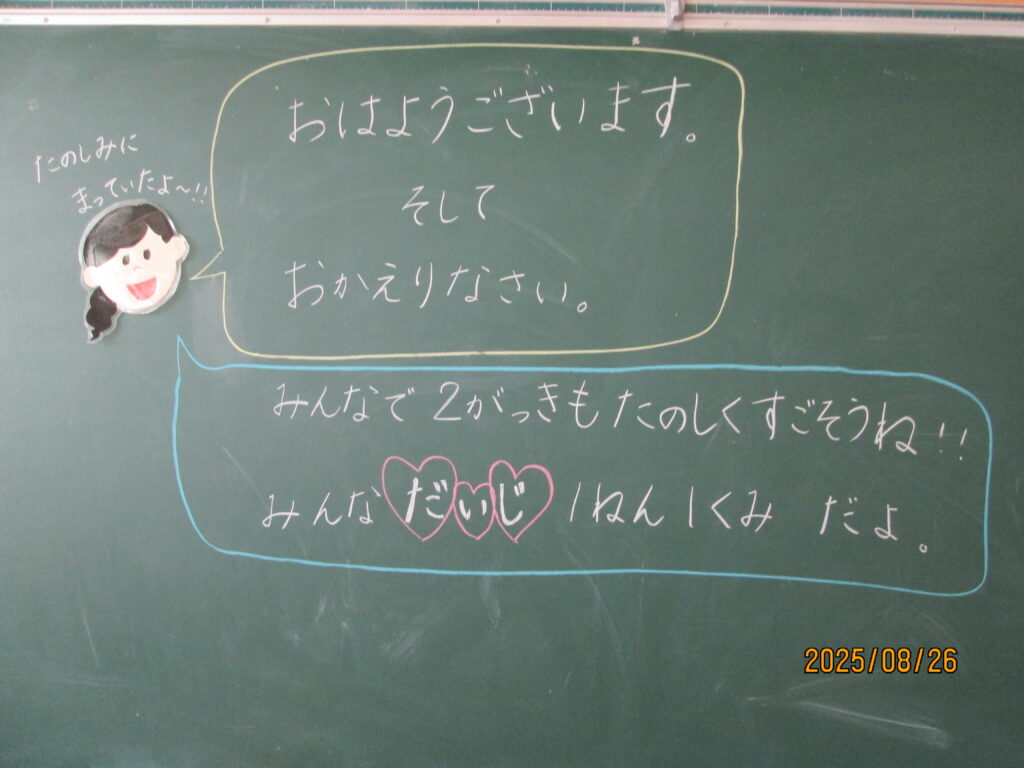 たのしみに
まっていたよ～!!
おはようございます。
そして
おかえりなさい。
みんなで2がっきもたのしくすごそうね!!
みんなだいじ1ねん1くみ だよ。
2025/08/26